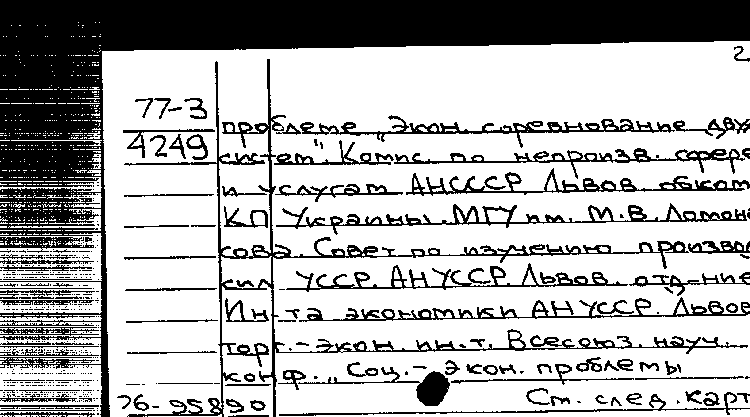 2
77-3
4249
проблеме „Экон. соревнование двух
систем". Комис. по непроизв. сфере
и услугам АНСССР. Львов. обком
КП Украины. МГУ им. М.В. Ломоно
сова. Совет по изучению производ
сил УССР. АН УССР. Львов. отд-ние
Ин-та экономики АН УССР. Львов
торг.-экон. ин-т. Всесоюз. науч.
конф. „Соц.-экон. проблемы
76-95890
См. след. карт